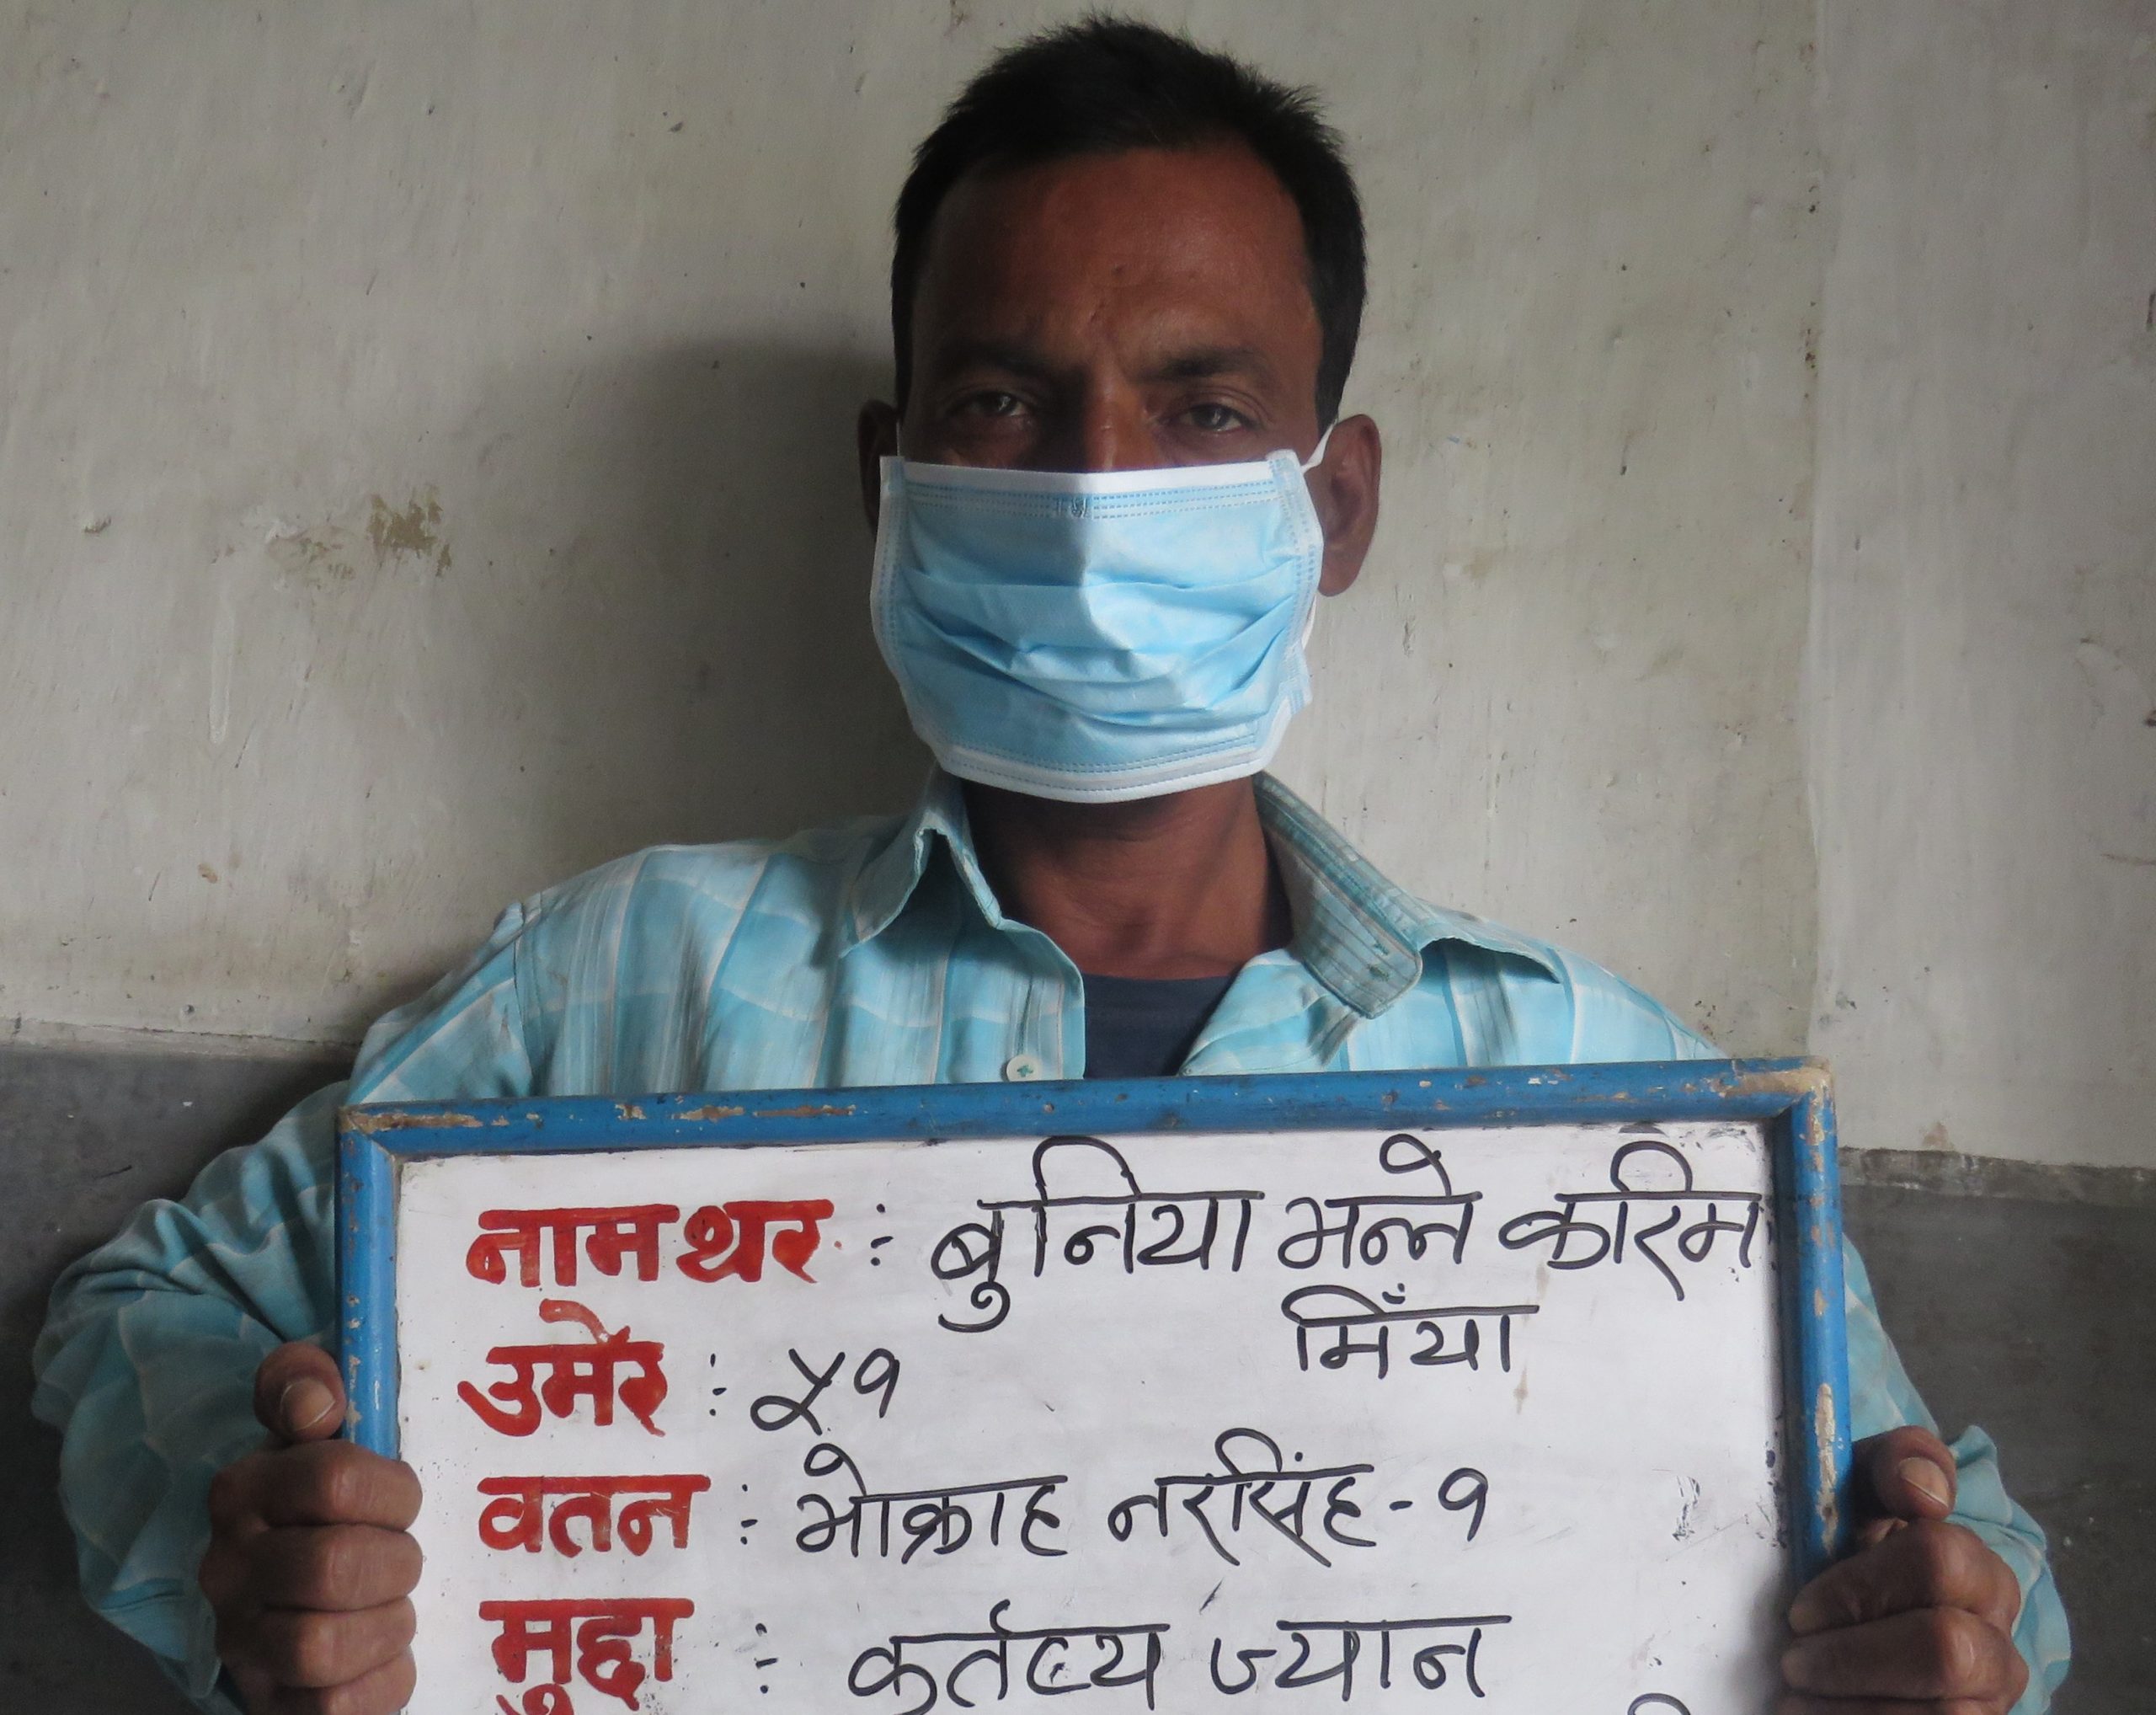 नामथर : बुनिया भन्ने करिम
मिँया
उमेर : ५१
वतन : भोक्राह नरसिंह-१
मुद्दा : कर्तव्य ज्यान